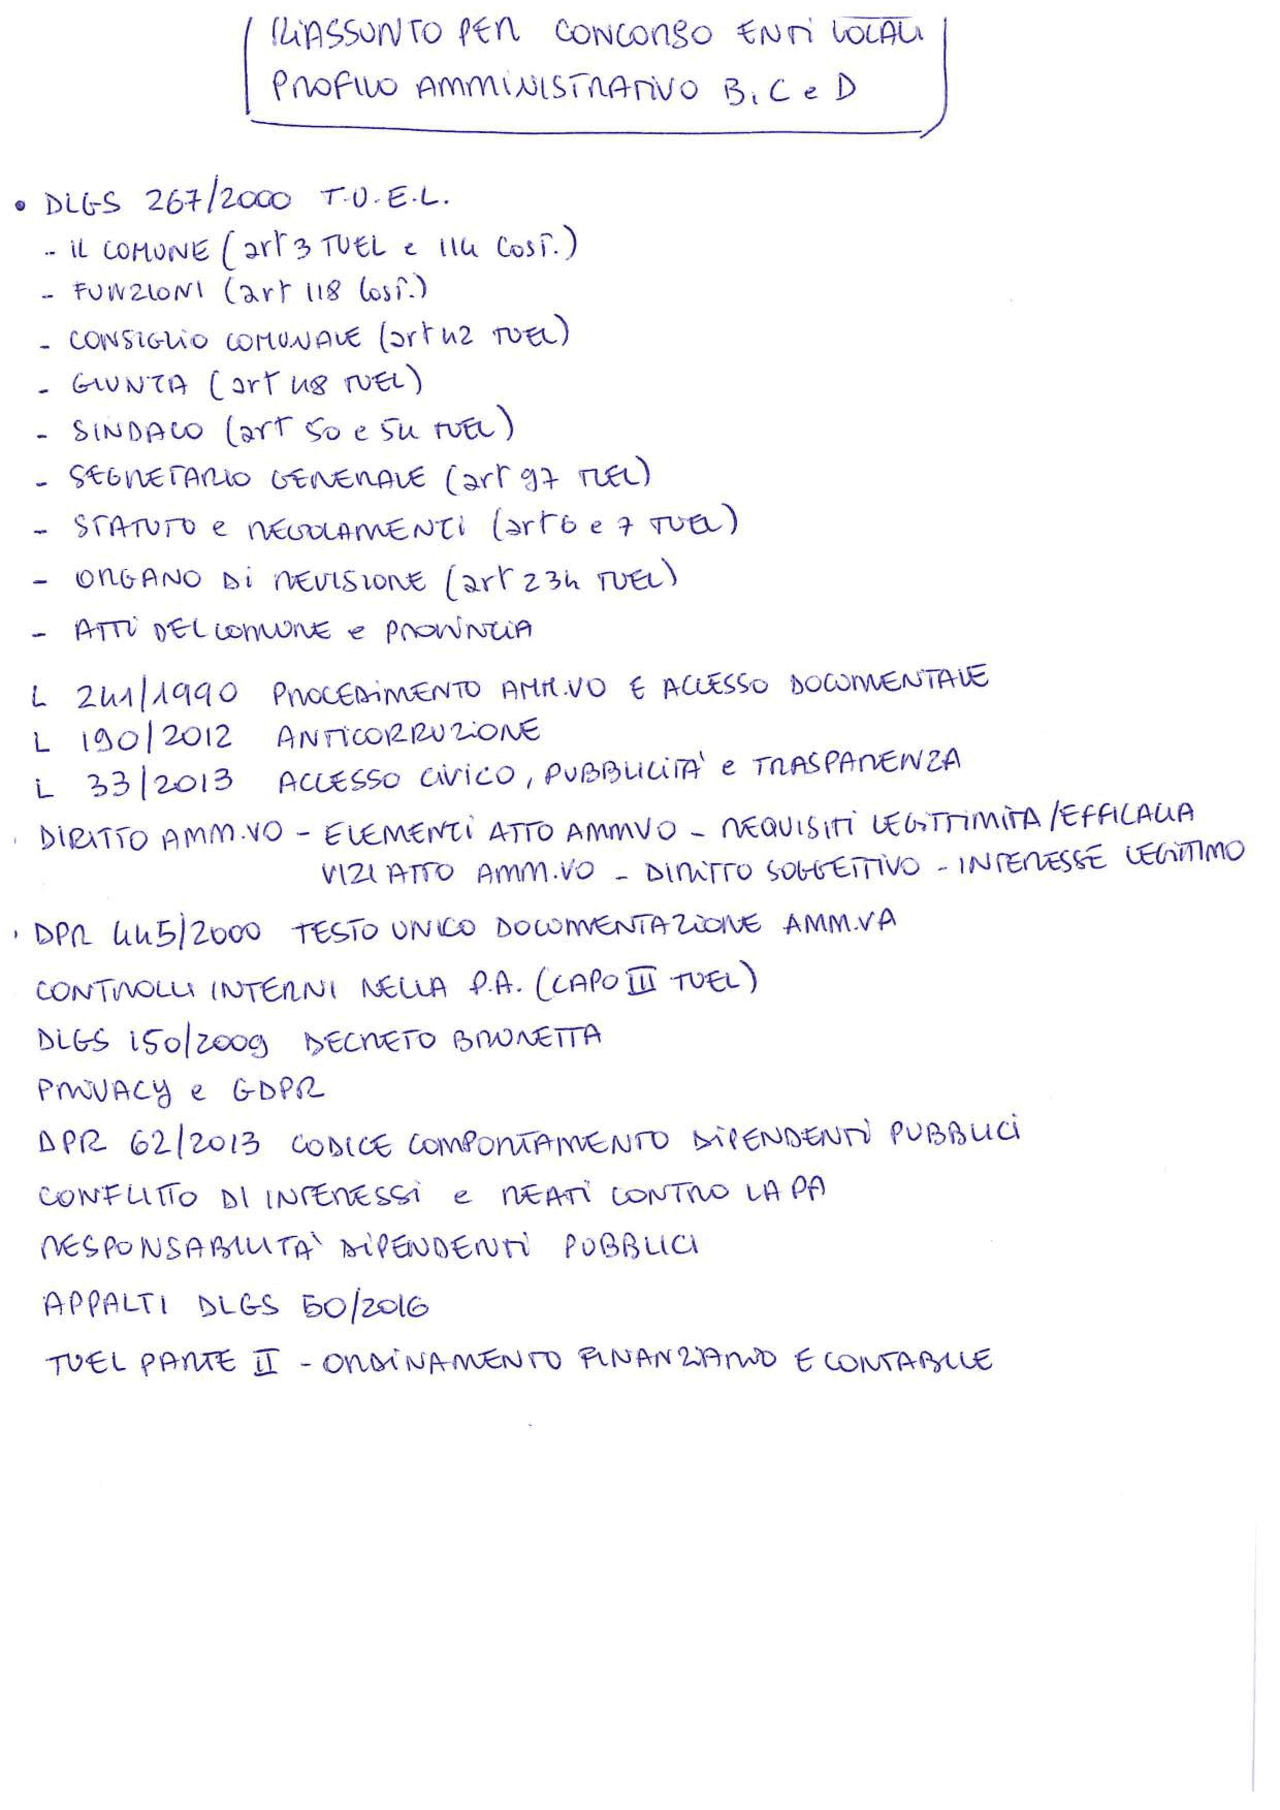 RIASSUNTO PER CONCORSO ENTI LOCALI
PROFILO AMMINISTRATIVO B, C e D
• DLGS 267/2000 T.U.E.L.
- IL COMUNE (art 3 TUEL e 114 COST.)
- FUNZIONI (art 118 COST.)
- CONSIGLIO COMUNALE (art 42 TUEL)
- GIUNTA (art 48 TUEL)
- SINDACO (art 50 e 54 TUEL)
- SEGRETARIO GENERALE (art 97 TUEL)
- STATUTO e REGOLAMENTI (art 6 e 7 TUEL)
- ORGANO DI REVISIONE (art 234 TUEL)
- ATTI DEL COMUNE e PROVINCIA
L 241/1990 PROCEDIMENTO AMM.VO E ACCESSO DOCUMENTALE
L 190/2012 ANTICORRUZIONE
L 33/2013 ACCESSO CIVICO, PUBBLICITA' e TRASPARENZA
DIRITTO AMM.VO - ELEMENTI ATTO AMMVO - REQUISITI LEGITTIMITA/EFFICACIA
VIZI ATTO AMM.VO - DIRITTO SOGGETTIVO - INTERESSE LEGITTIMO
DPR 445/2000 TESTO UNICO DOCUMENTAZIONE AMM.VA
CONTROLLI INTERNI NELLA P.A. (CAPO III TUEL)
DLGS 150/2009 DECRETO BRUNETTA
PRIVACY e GDPR
DPR 62/2013 CODICE COMPORTAMENTO DIPENDENTI PUBBLICI
CONFLITTO DI INTERESSI e REATI CONTRO LA PA
RESPONSABILITA' DIPENDENTI PUBBLICI
APPALTI DLGS 50/2016
TUEL PARTE II - ORDINAMENTO FINANZIARIO E CONTABILE